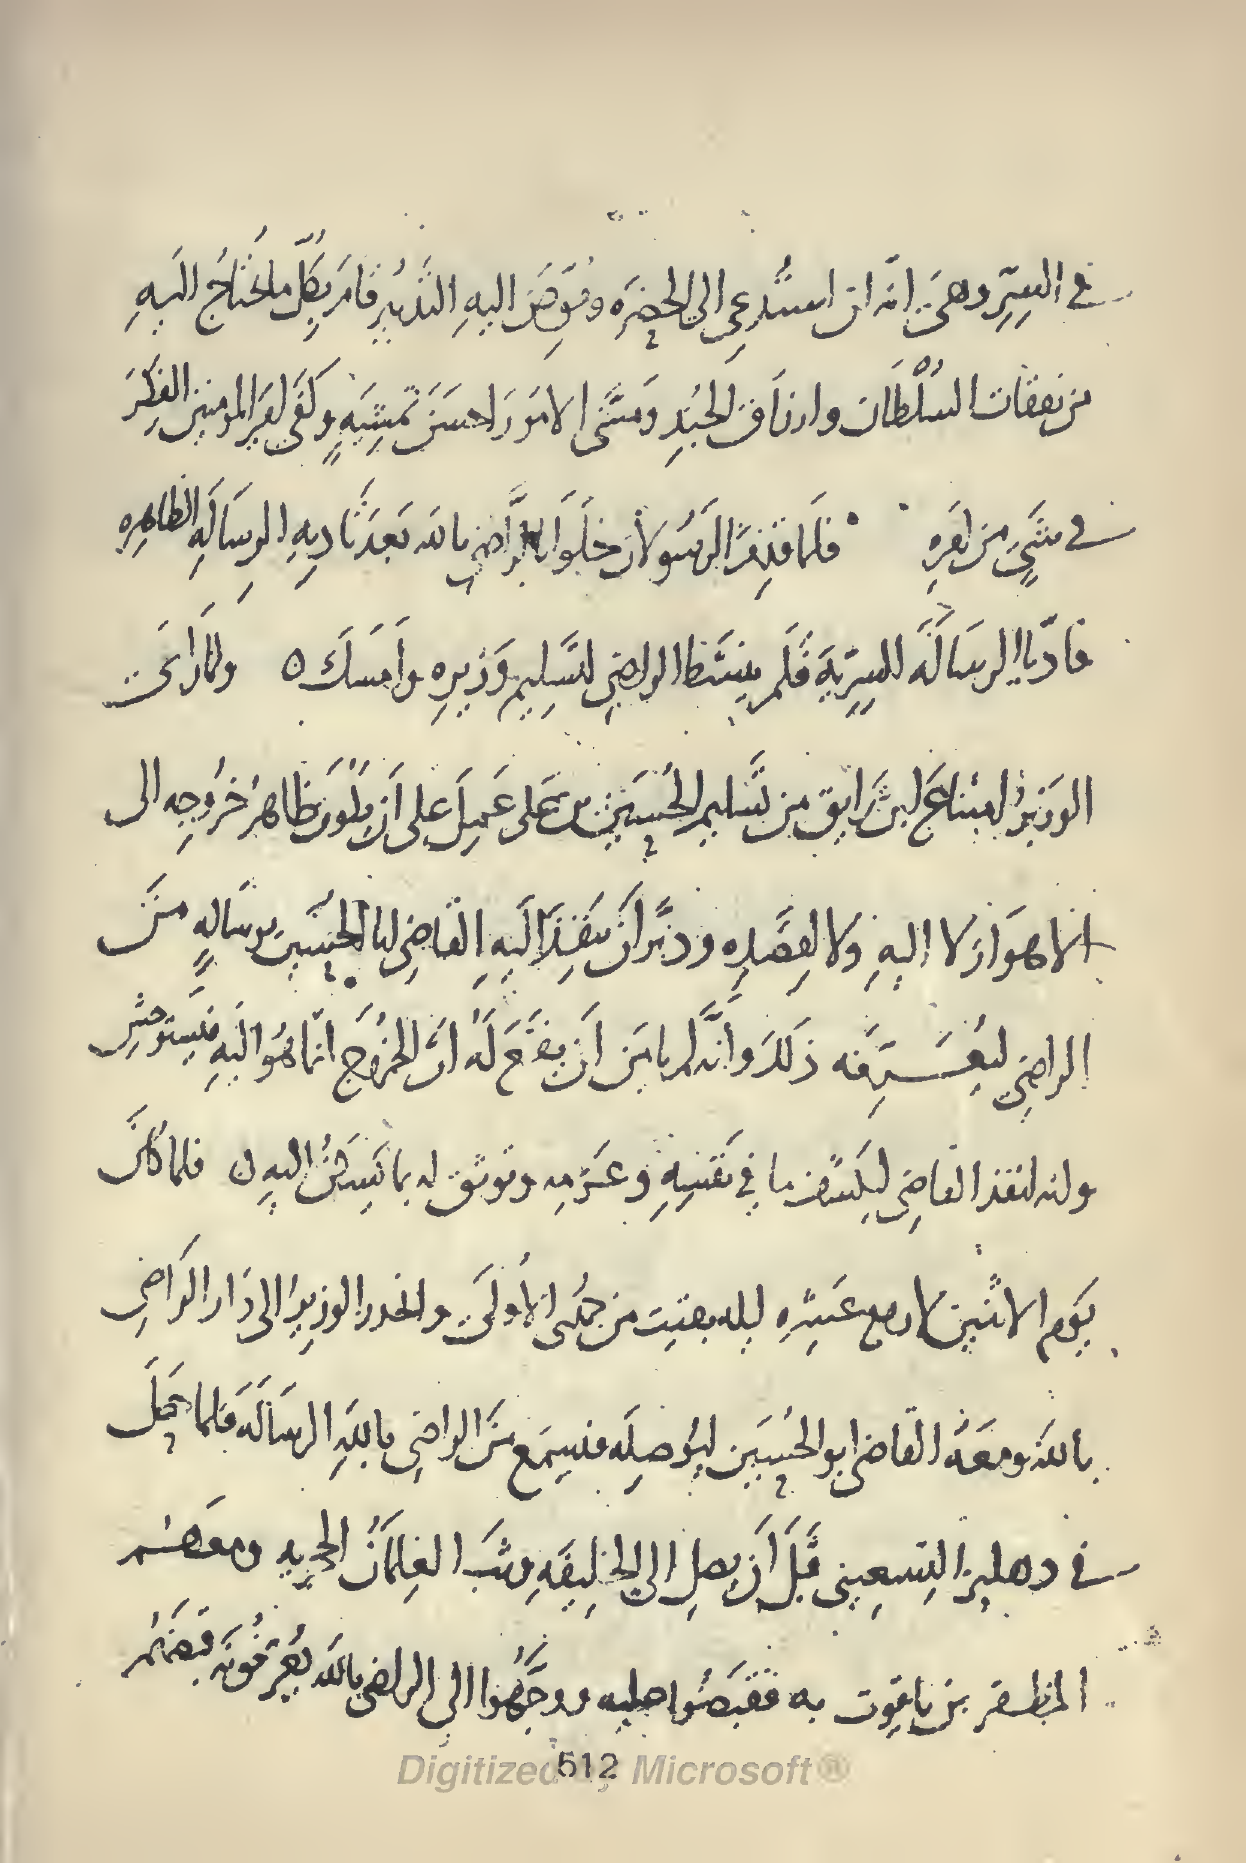 في السِرِّ وهي انه ان استُدعِي الى الحضرَه وفُوِّضَ اليهِ التَدبيرِ قامَ بِكُلِّ ما يُحتاج اليهِ
من نفقات السُلْطَان وارزاق الجُندِ ومَشَّى الامورَ احسَنَ تمشِيَهٍ وكَفَى امير المومنين الفِكرَ
في شَيءٍ من امرِه فلمّا قدِمَ الرَسُولان خلَوا بالرّاضي بالله بَعدَ تَادِيهِ الرِسَالَهِ الظاهِرهِ
فادّيا الرسَالَه السِرِّيةَ فلَم ينشَط الراضي لتَسلِيم وَزيرِه وامسَكَ ٥ ولمّا رَأى
الوَزيرُ امتناعَ ابن رَايق من تَسليم الحُسَين بن علي عَمِلَ على أن يكُونَ ظاهِرُ خرُوجِه الى
انما هوَ ارسلا اليهِ ولا لِقصَدِه ودبَّر أن ينفِذَ اليهِ القاضِي ابا الحُسَين برسَالهٍ منَ
الراضِي ليُعَـرِّفه ذلكَ وأنَّه لم يامَن أن يقَعَ لَهُ انَّ الخرُوجَ انّما هُوَ اليهِ فيَستوحِش
وانه انفذ القاضِي ليكشف ما في نفسِهِ وعَزمِه وتوثق له بما يَسكُنُ اليهِ ٥ فلما كانَ
يَوم الاثنين لاربع عَشرَه ليله بقيت من جمَدى الأُولَى وانحدر الوزيرُ الى دَار الرَاضِي
بالله ومعَهُ القاضي ابو الحُسَين ليُوصِلَه فيسمَع منَ الراضِي بالله الرسَالَه فلما حصَلَ
في دهليز التسعيني قَبلَ أن يصِل الى الخليفَهِ وثبَ الغِلمَانُ الحجريه ومعَهُم
المظفر بن ياقوت به فقبَضُوا عليه ووجَّهُوا الى الراضي بالله يُعرِّفُونَه قبضَهُم
512
Digitized by Microsoft®